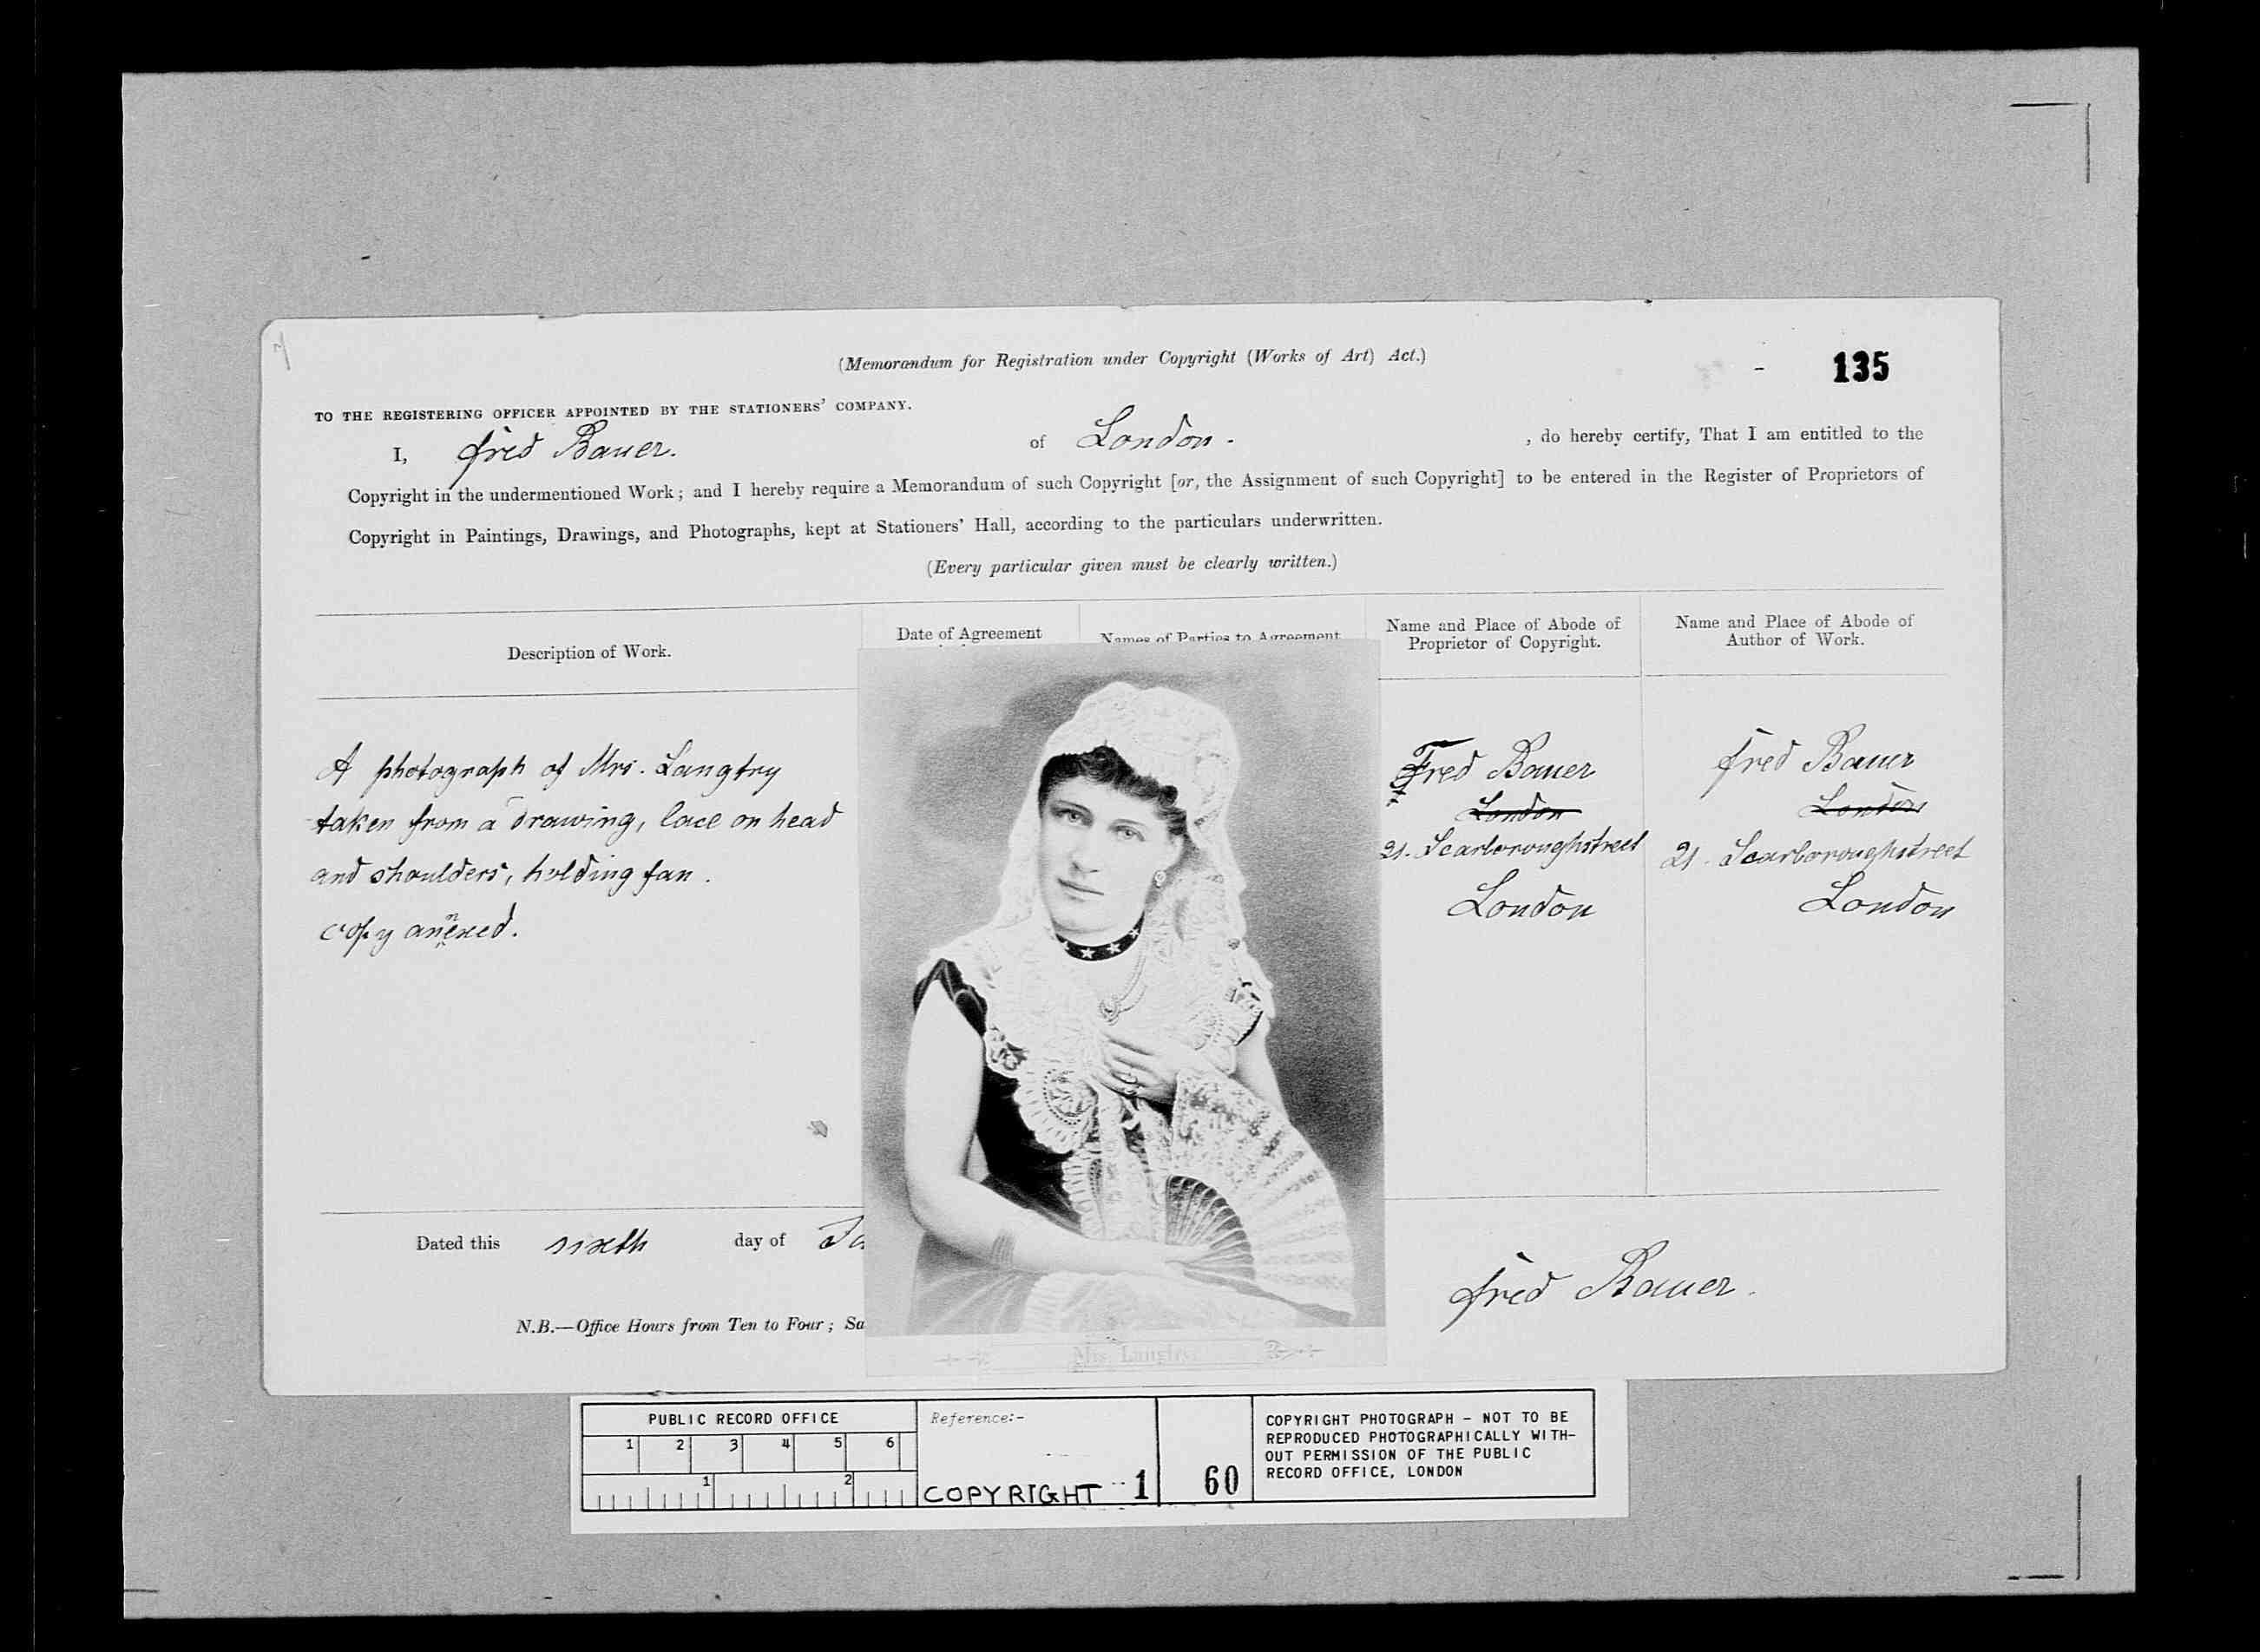 (Memorandum for Registration under Copyright (Works of Art) Act.)
135
TO THE REGISTERING OFFICER APPOINTED BY THE STATIONERS' COMPANY.
I, Fred Bauer. of London. , do hereby certify, That I am entitled to the
Copyright in the undermentioned Work; and I hereby require a Memorandum of such Copyright [or, the Assignment of such Copyright] to be entered in the Register of Proprietors of
Copyright in Paintings, Drawings, and Photographs, kept at Stationers' Hall, according to the particulars underwritten.
(Every particular given must be clearly written.)
Description of Work.
Date of Agreement
Names of Parties to Agreement
Name and Place of Abode of
Proprietor of Copyright.
Name and Place of Abode of
Author of Work.
A photograph of Mrs. Langtry
taken from a drawing, lace on head
and shoulders, holding fan.
copy annexed.
Fred Bauer
London
21. Scarboroughstreet
London
Fred Bauer
London
21. Scarboroughstreet
London
Dated this sixth day of
Fred Bauer.
N.B.—Office Hours from Ten to Four; Sa
Mrs. Langtry
PUBLIC RECORD OFFICE
1 2 3 4 5 6
1 2
Reference:-
COPYRIGHT 1 60
COPYRIGHT PHOTOGRAPH - NOT TO BE
REPRODUCED PHOTOGRAPHICALLY WITH-
OUT PERMISSION OF THE PUBLIC
RECORD OFFICE, LONDON